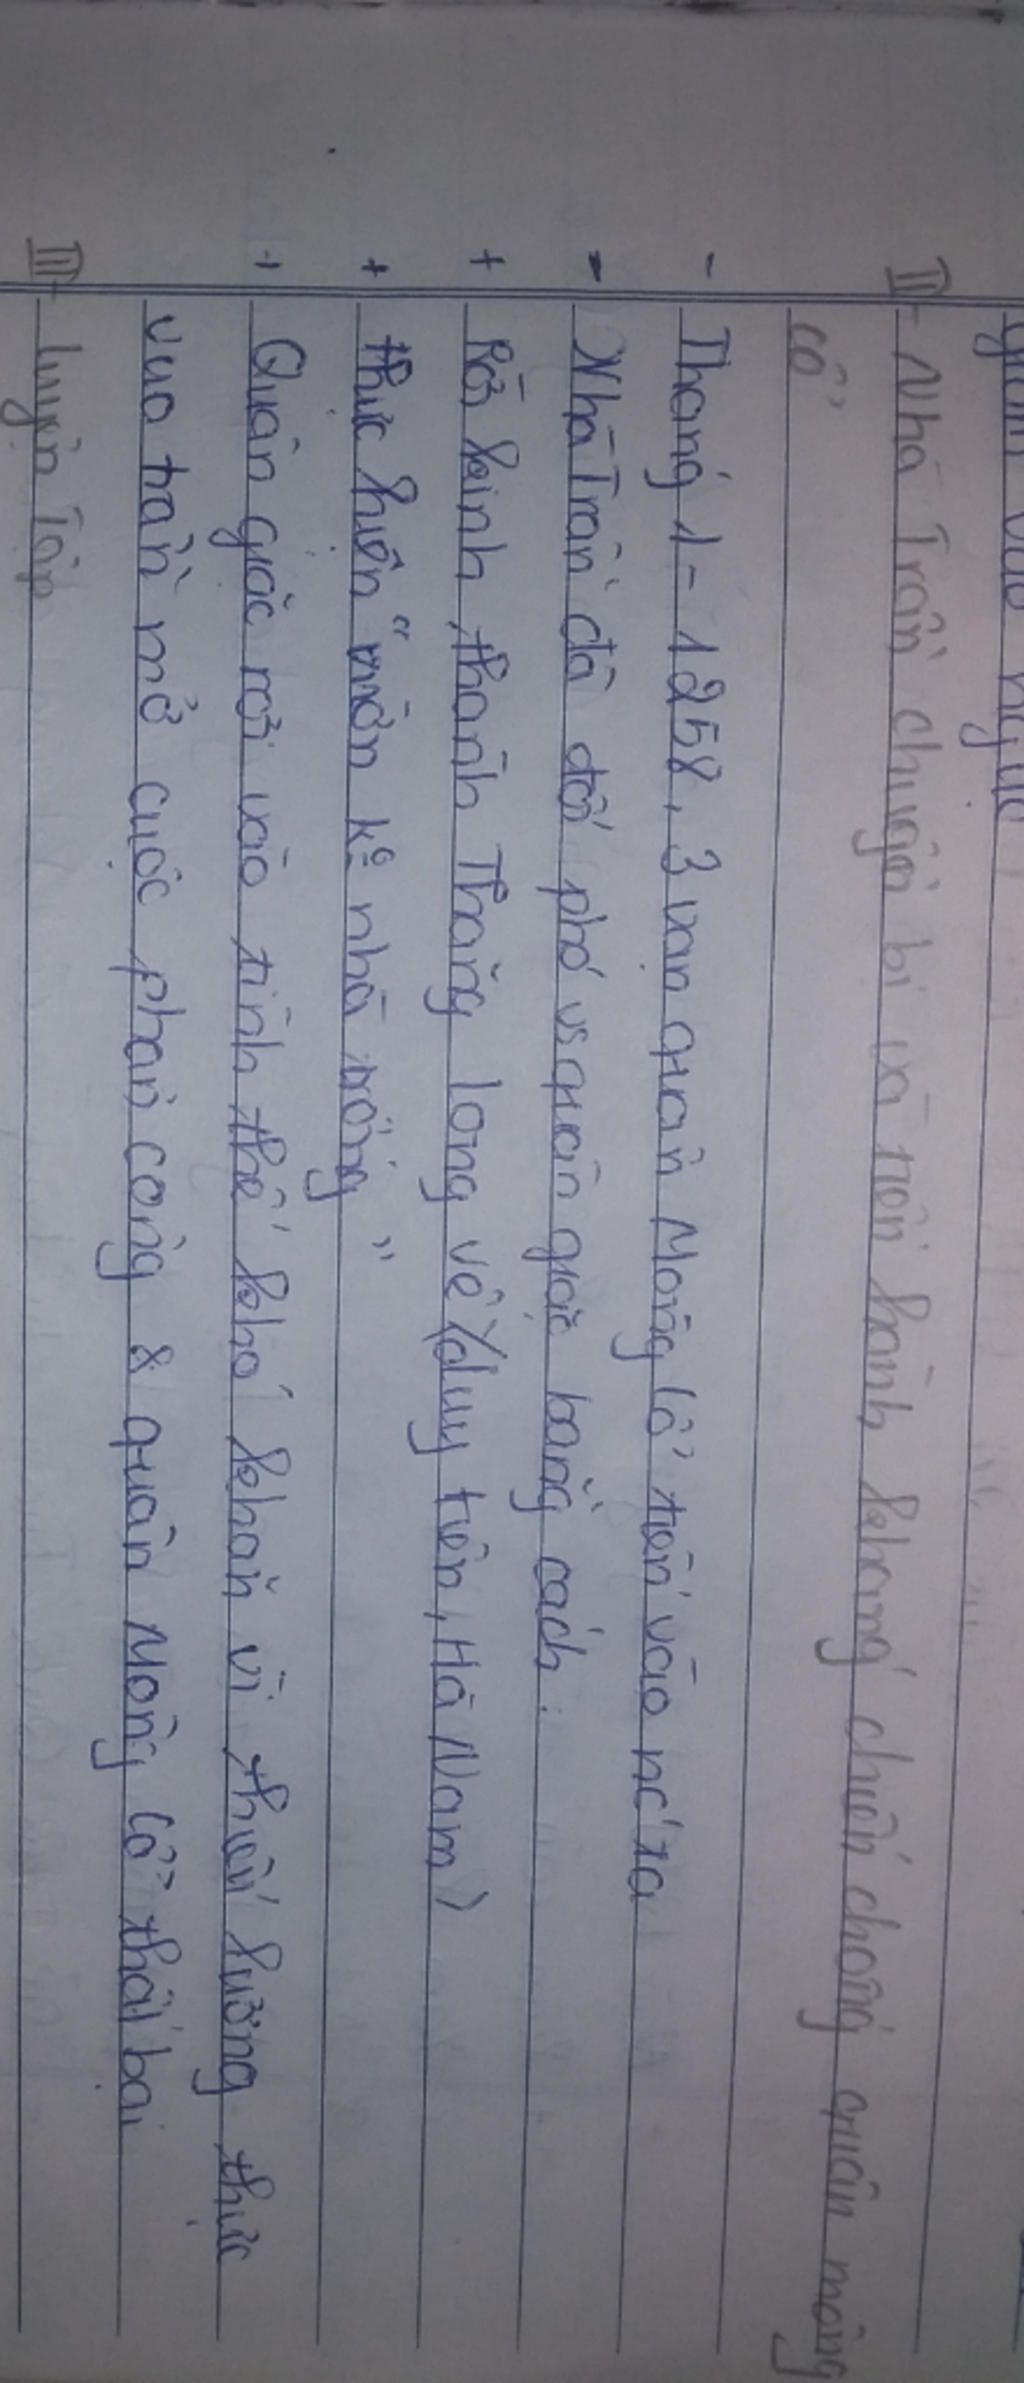 II - Nhà Trần chuẩn bị và tiến hành kháng chiến chống quân mông
cổ
- Tháng 1 - 1258, 3 vạn quân Mông Cổ tiến vào nc' ta
- Nhà Trần đã đối phó vs quân giặc bằng cách :
+ Rời kinh thành Thăng Long về (duy tiên, Hà Nam)
+ thực hiện "vườn ko nhà trống"
+ Quân giặc rơi vào tình thế khó khăn vì thiếu lương thực
vua trần mở cuộc phản công & quân Mông Cổ thất bại
III - Luyện Tập